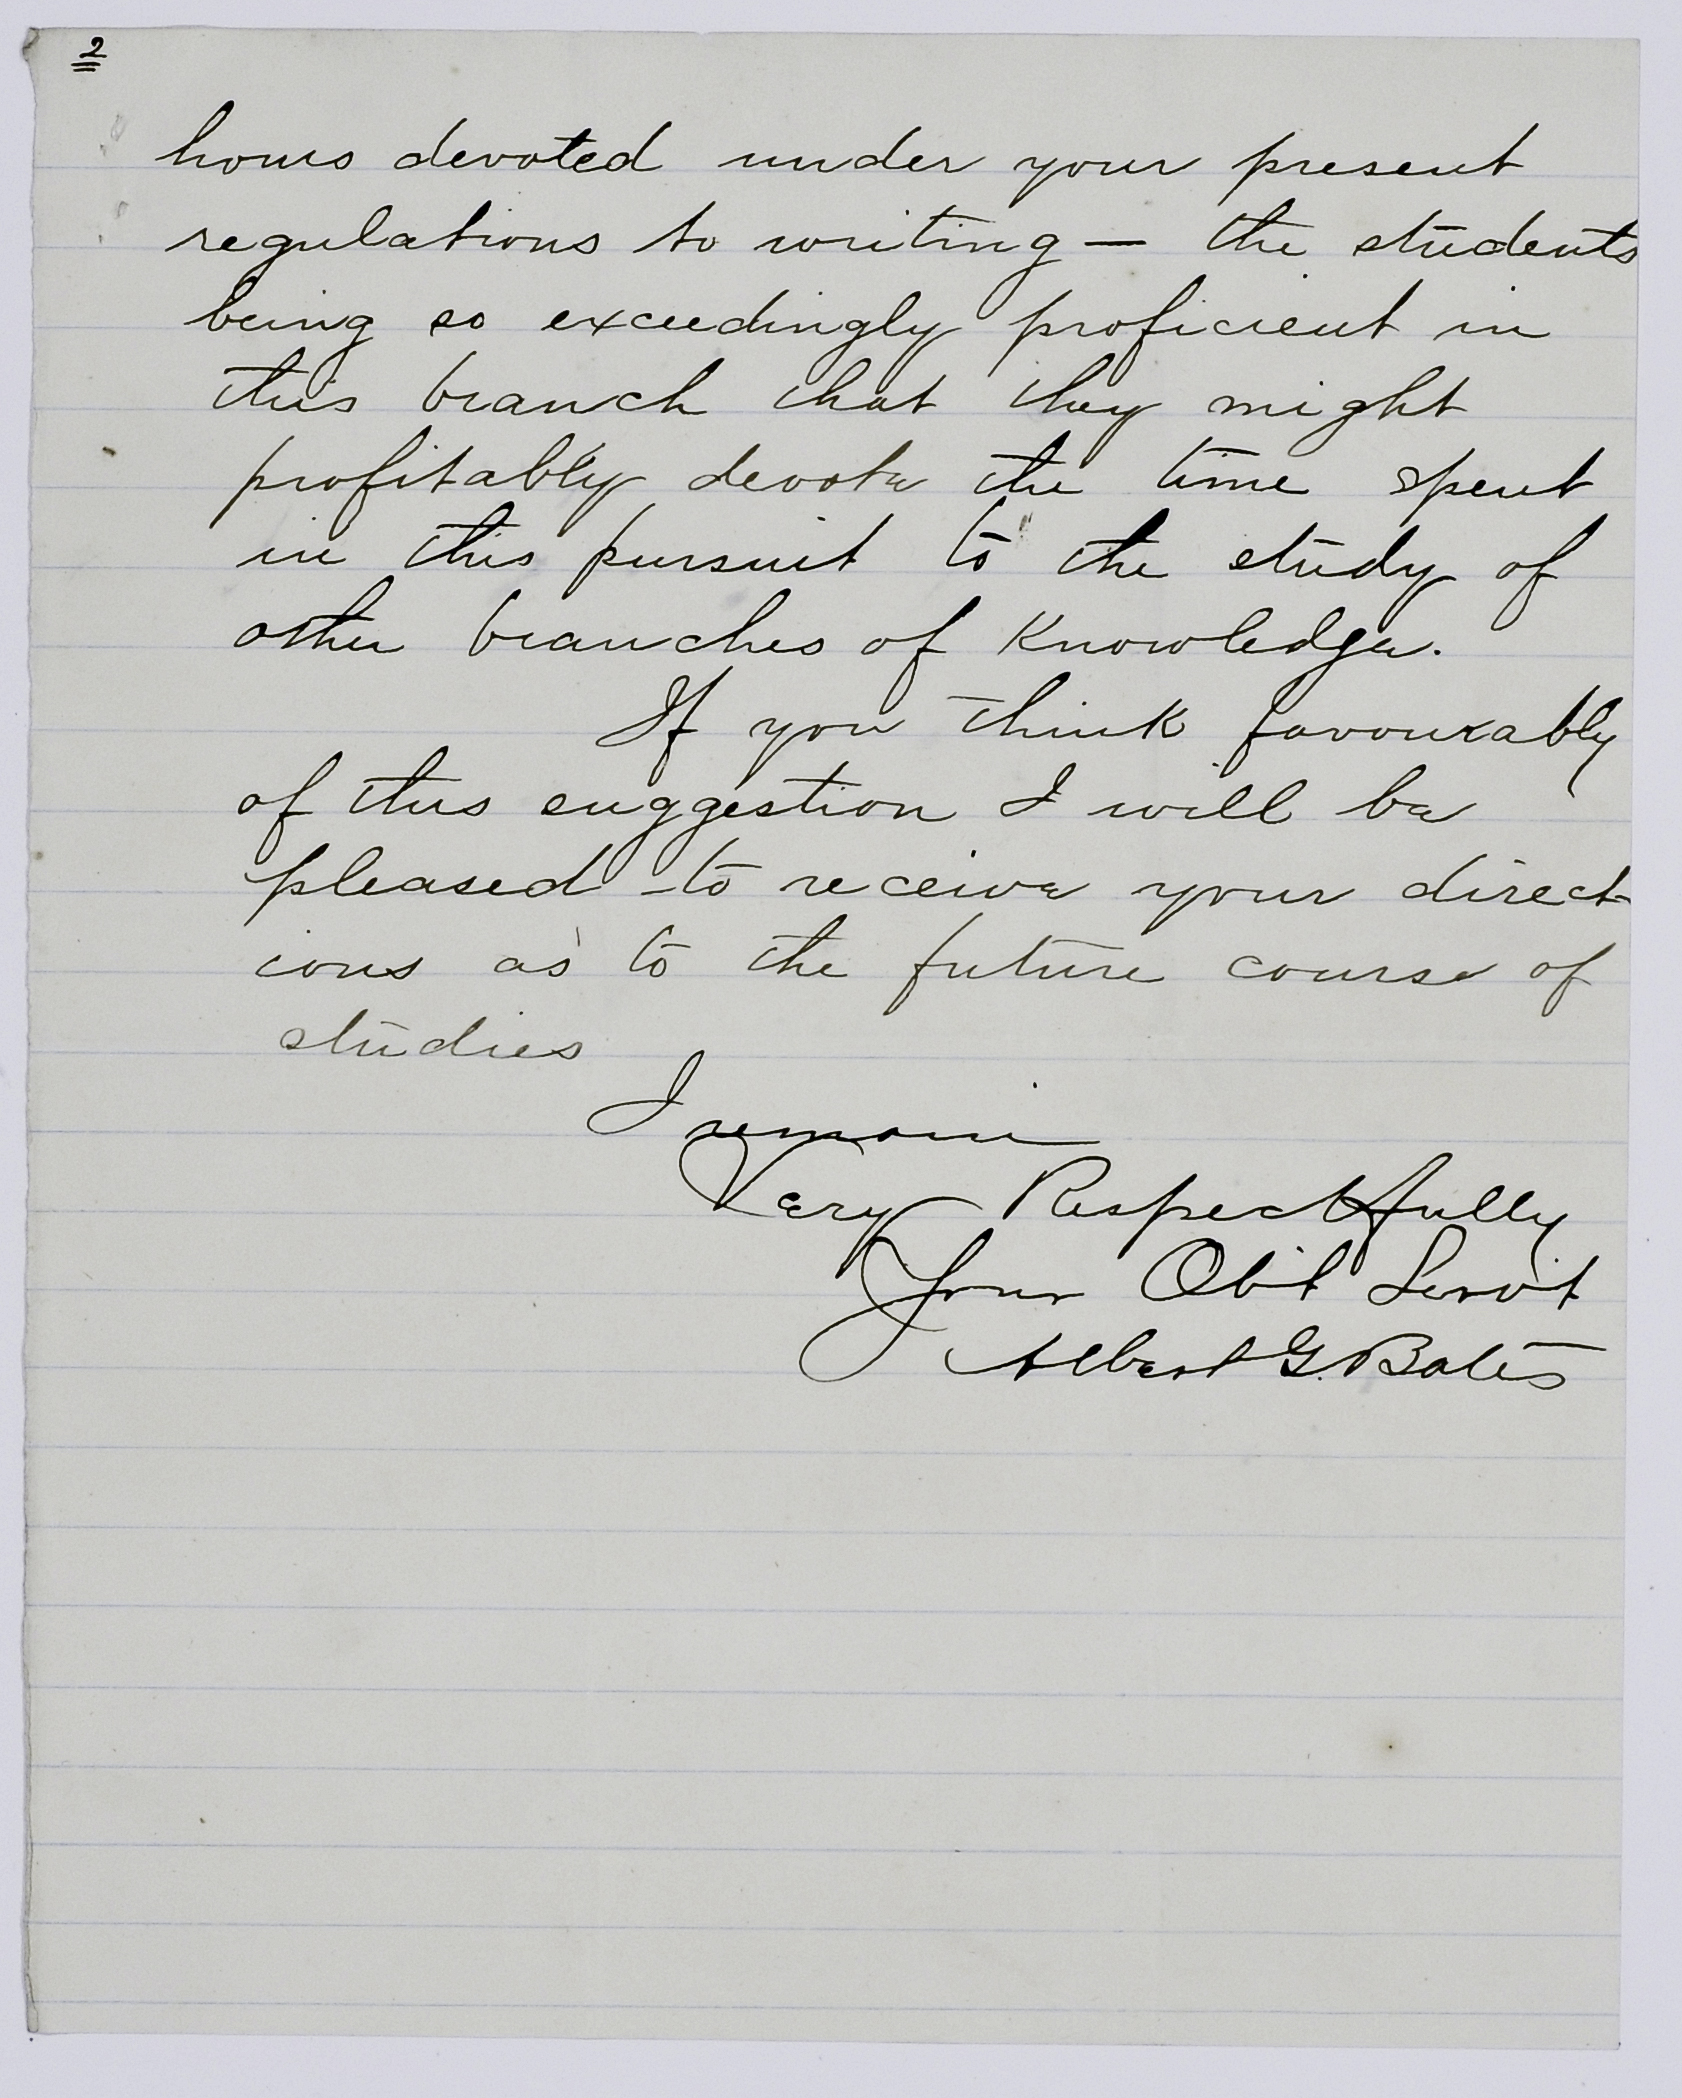 2
hours devoted under your present
regulations to writing — the students
being so exceedingly proficient in
this branch that they might
profitably devote the time spent
in this pursuit to the study of
other branches of Knowledge.
If you think favourably
of this suggestion I will be
pleased to receive your direct-
ions as to the future course of
studies
I remain
Very Respectfully
Your Ob't Serv't
Albert G. Bates